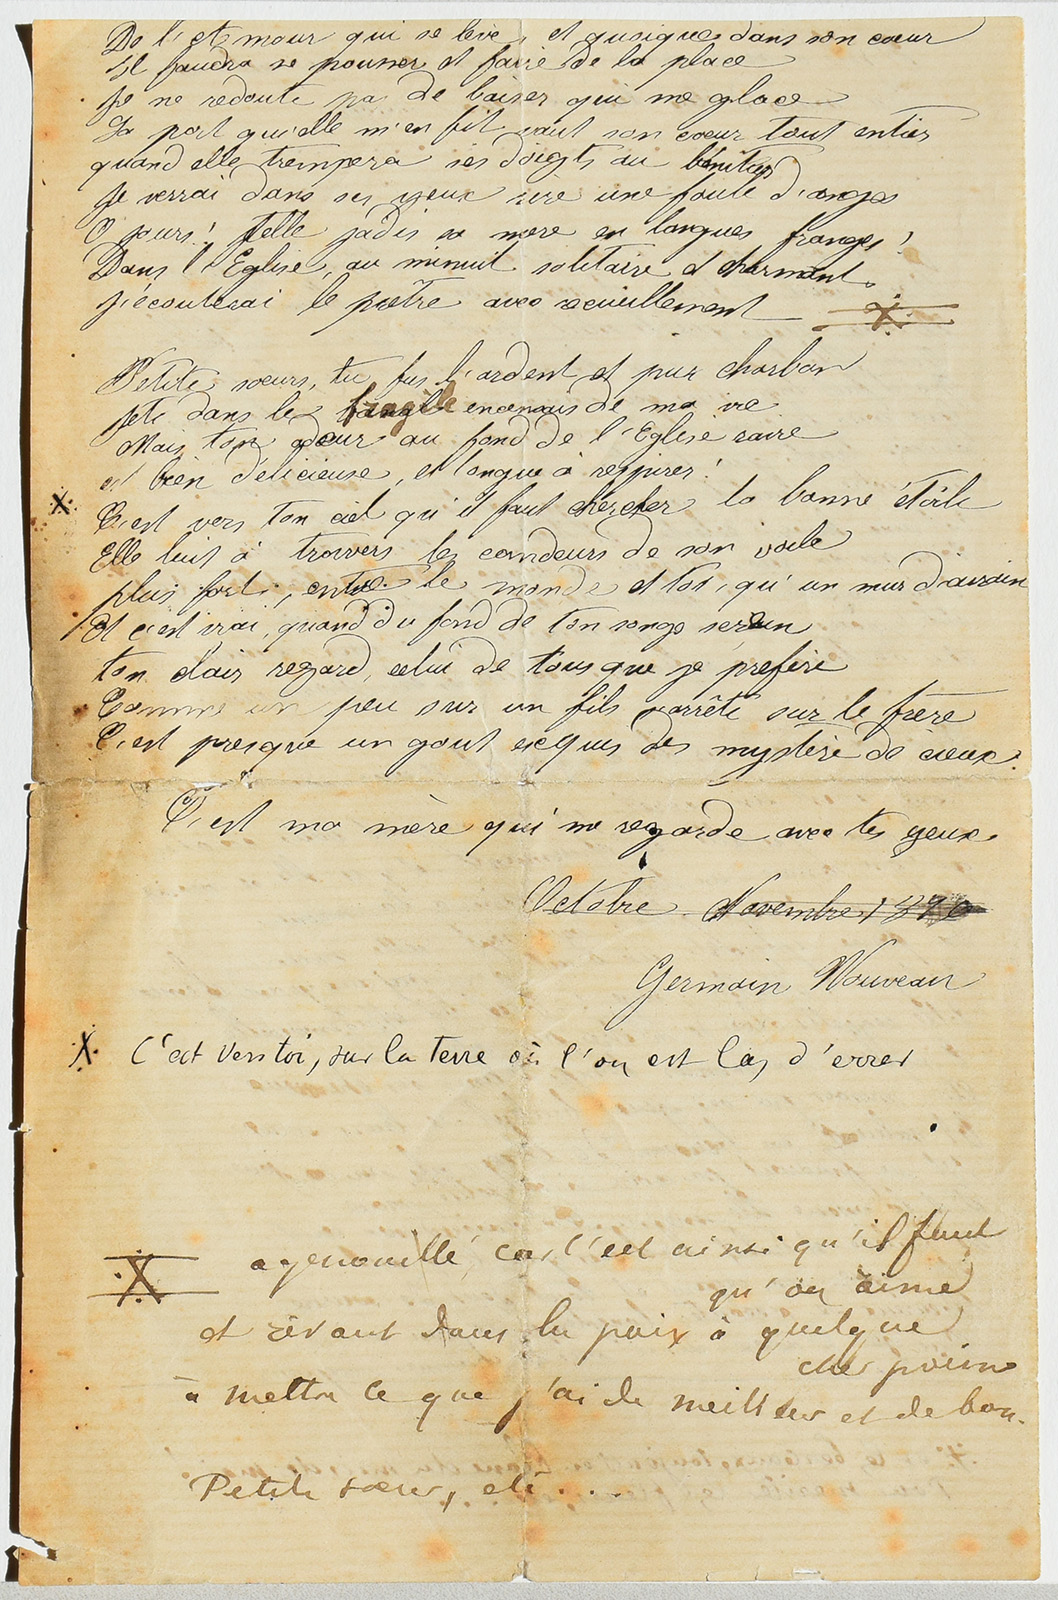 De l'et mour qui se lève, et quoique dans son cœur
Il faudra se pousser et faire de la place
Je ne redoute pas de baiser qui me glace
La part qu'elle m'en fit vaut son cœur tout entier
quand elle trempera ses doigts au bénitier
Je verrai dans ses yeux rire une foule d'anges
O jours! telle jadis sa mère en longues franges!
Dans l'Eglise, au minuit solitaire et charmant.
J'écouterai le prêtre avec recueillement
Petite sœur, tu fus l'ardent et pur charbon
jeté dans le fragile encensoir de ma vie
Mais ton odeur au fond de l'Eglise
est bien délicieuse, et longue à respirer!
X C'est vers ton ciel qu'il faut chercher la bonne étoile
Elle luit à travers les candeurs de son voile
plus fort, entre le monde et toi, qu'un mur d'airain
Et c'est vrai, quand du fond de ton songe serein
ton clair regard, celui de tous que je préfère
Comme un peu sur un fils s'arrête sur le frère
C'est presque un gout exquis des mystère de cieux.
C'est ma mère qui me regarde avec tes yeux.
Octobre Novembre 187
Germain Nouveau
X. C'est vers toi, sur la terre où l'on est las d'errer
X agenouillé, car c'est ainsi qu'il faut
qu'on aime
et rêvant dans la paix à quelque
cher poème
à mettre ce que j'ai de meilleur et de bon.
Petite sœur, etc...